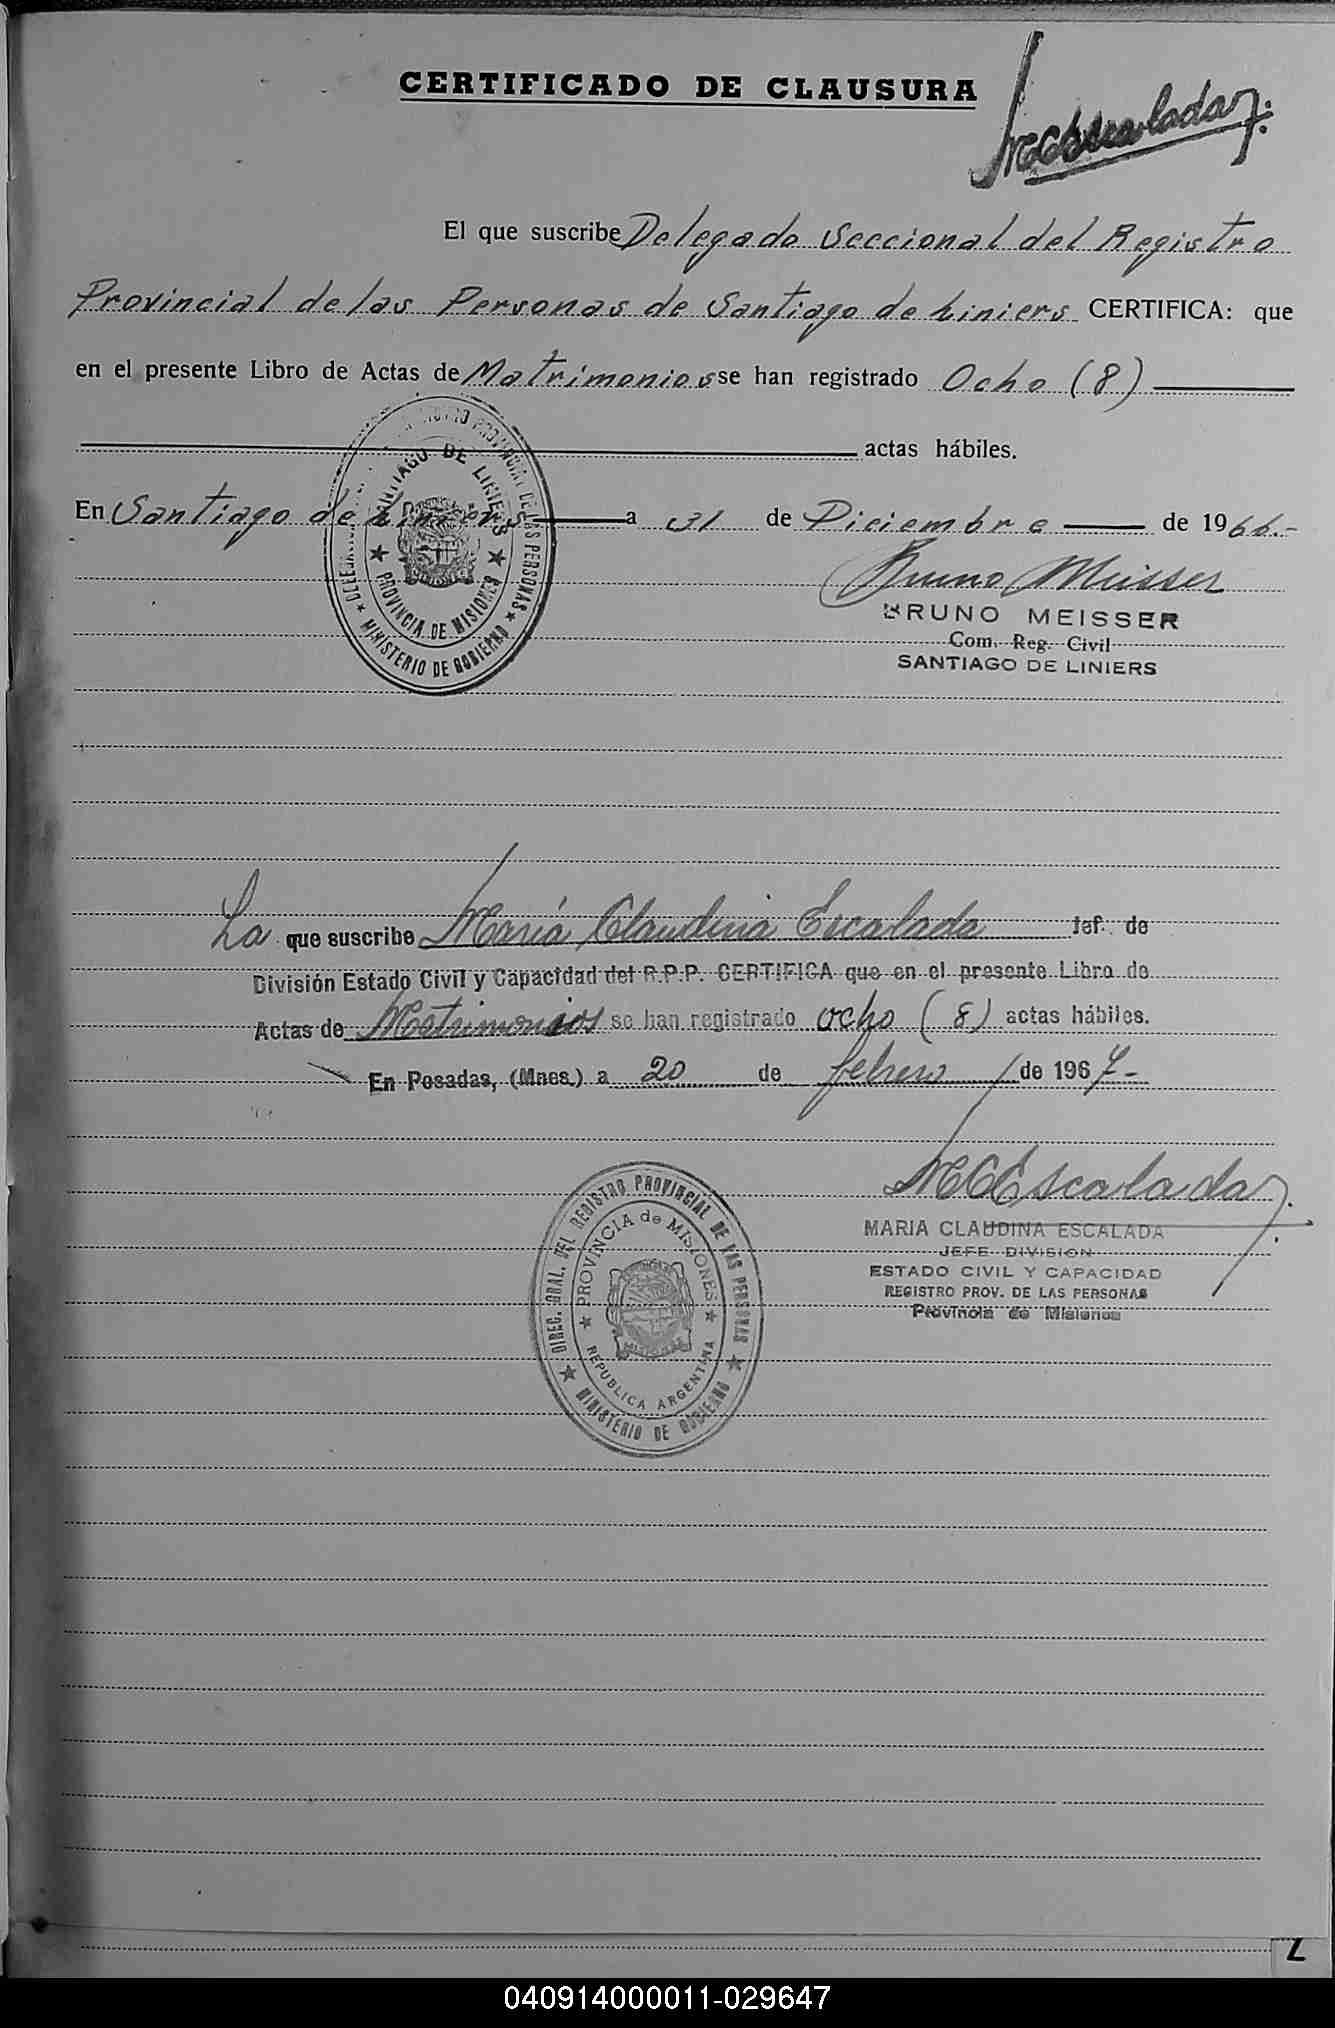 CERTIFICADO DE CLAUSURA
MCEscalada
El que suscribe Delegado Seccional del Registro
Provincial de las Personas de Santiago de Liniers CERTIFICA: que
en el presente Libro de Actas de Matrimonios se han registrado Ocho (8)
actas hábiles.
En Santiago de Liniers a 31 de Diciembre de 1966.-
Bruno Meisser
BRUNO MEISSER
Com. Reg. Civil
SANTIAGO DE LINIERS
REGISTRO PROVINCIAL DE LAS PERSONAS
SANTIAGO DE LINIERS
PROVINCIA DE MISIONES
MINISTERIO DE GOBIERNO
La que suscribe María Claudina Escalada Jef. de
División Estado Civil y Capacidad del R.P.P. CERTIFICA que en el presente Libro de
Actas de Matrimonios se han registrado ocho (8) actas hábiles.
En Posadas, (Mnes.) a 20 de febrero de 1967-
MCEscalada
MARIA CLAUDINA ESCALADA
JEFE DIVISION
ESTADO CIVIL Y CAPACIDAD
REGISTRO PROV. DE LAS PERSONAS
Provincia de Misiones
DIREC. GRAL. DEL REGISTRO PROVINCIAL DE LAS PERSONAS
PROVINCIA de MISIONES
REPUBLICA ARGENTINA
MINISTERIO DE GOBIERNO
040914000011-029647